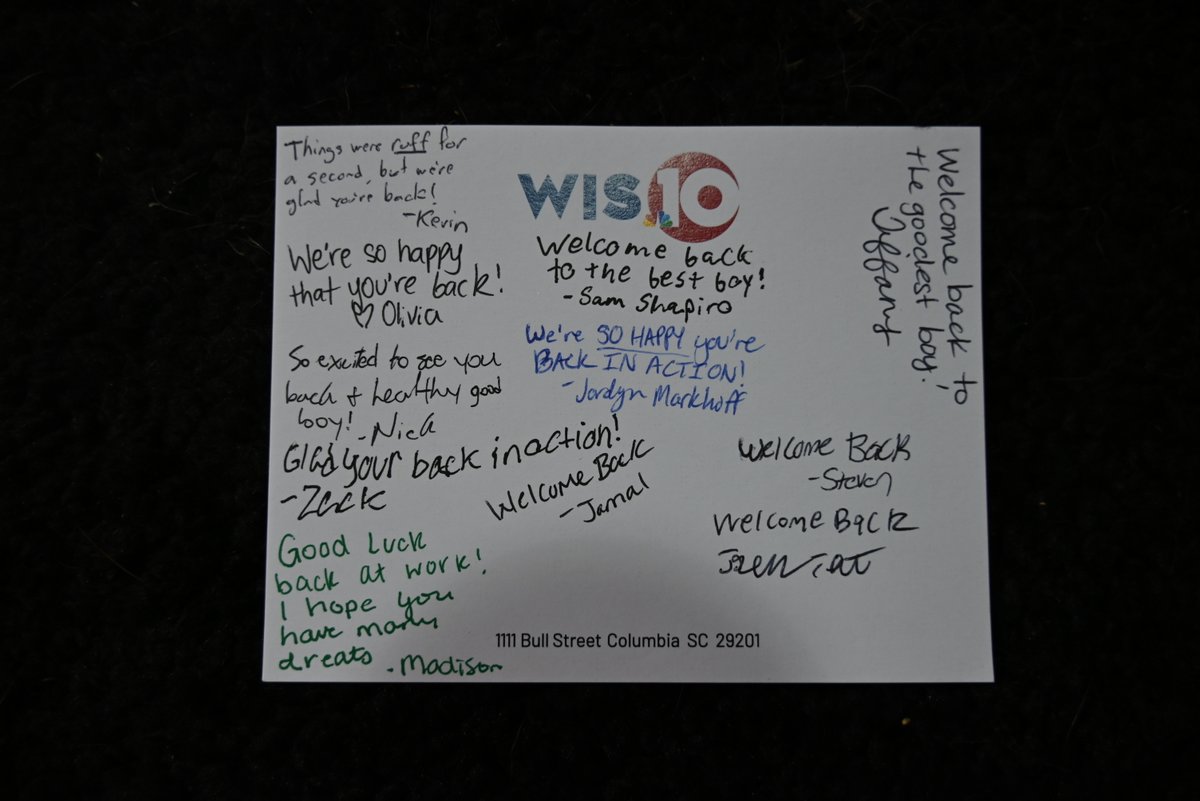 Things were ruff for
a second, but we're
glad you're back!
-Kevin
We're so happy
that you're back!
♡ Olivia
So excited to see you
back + healthy good
boy! -Nick
Glad your back in action!
-Zack
Good Luck
back at work!
I hope you
have many
treats -Madison
WIS 10
Welcome back
to the best boy!
-Sam Shapiro
We're SO HAPPY you're
BACK IN ACTION!
-Jordyn Markhoff
Welcome Back
-Jamal
Welcome back to
the goodest boy!
Tiffany
Welcome Back
-Steven
Welcome Back
1111 Bull Street Columbia SC 29201